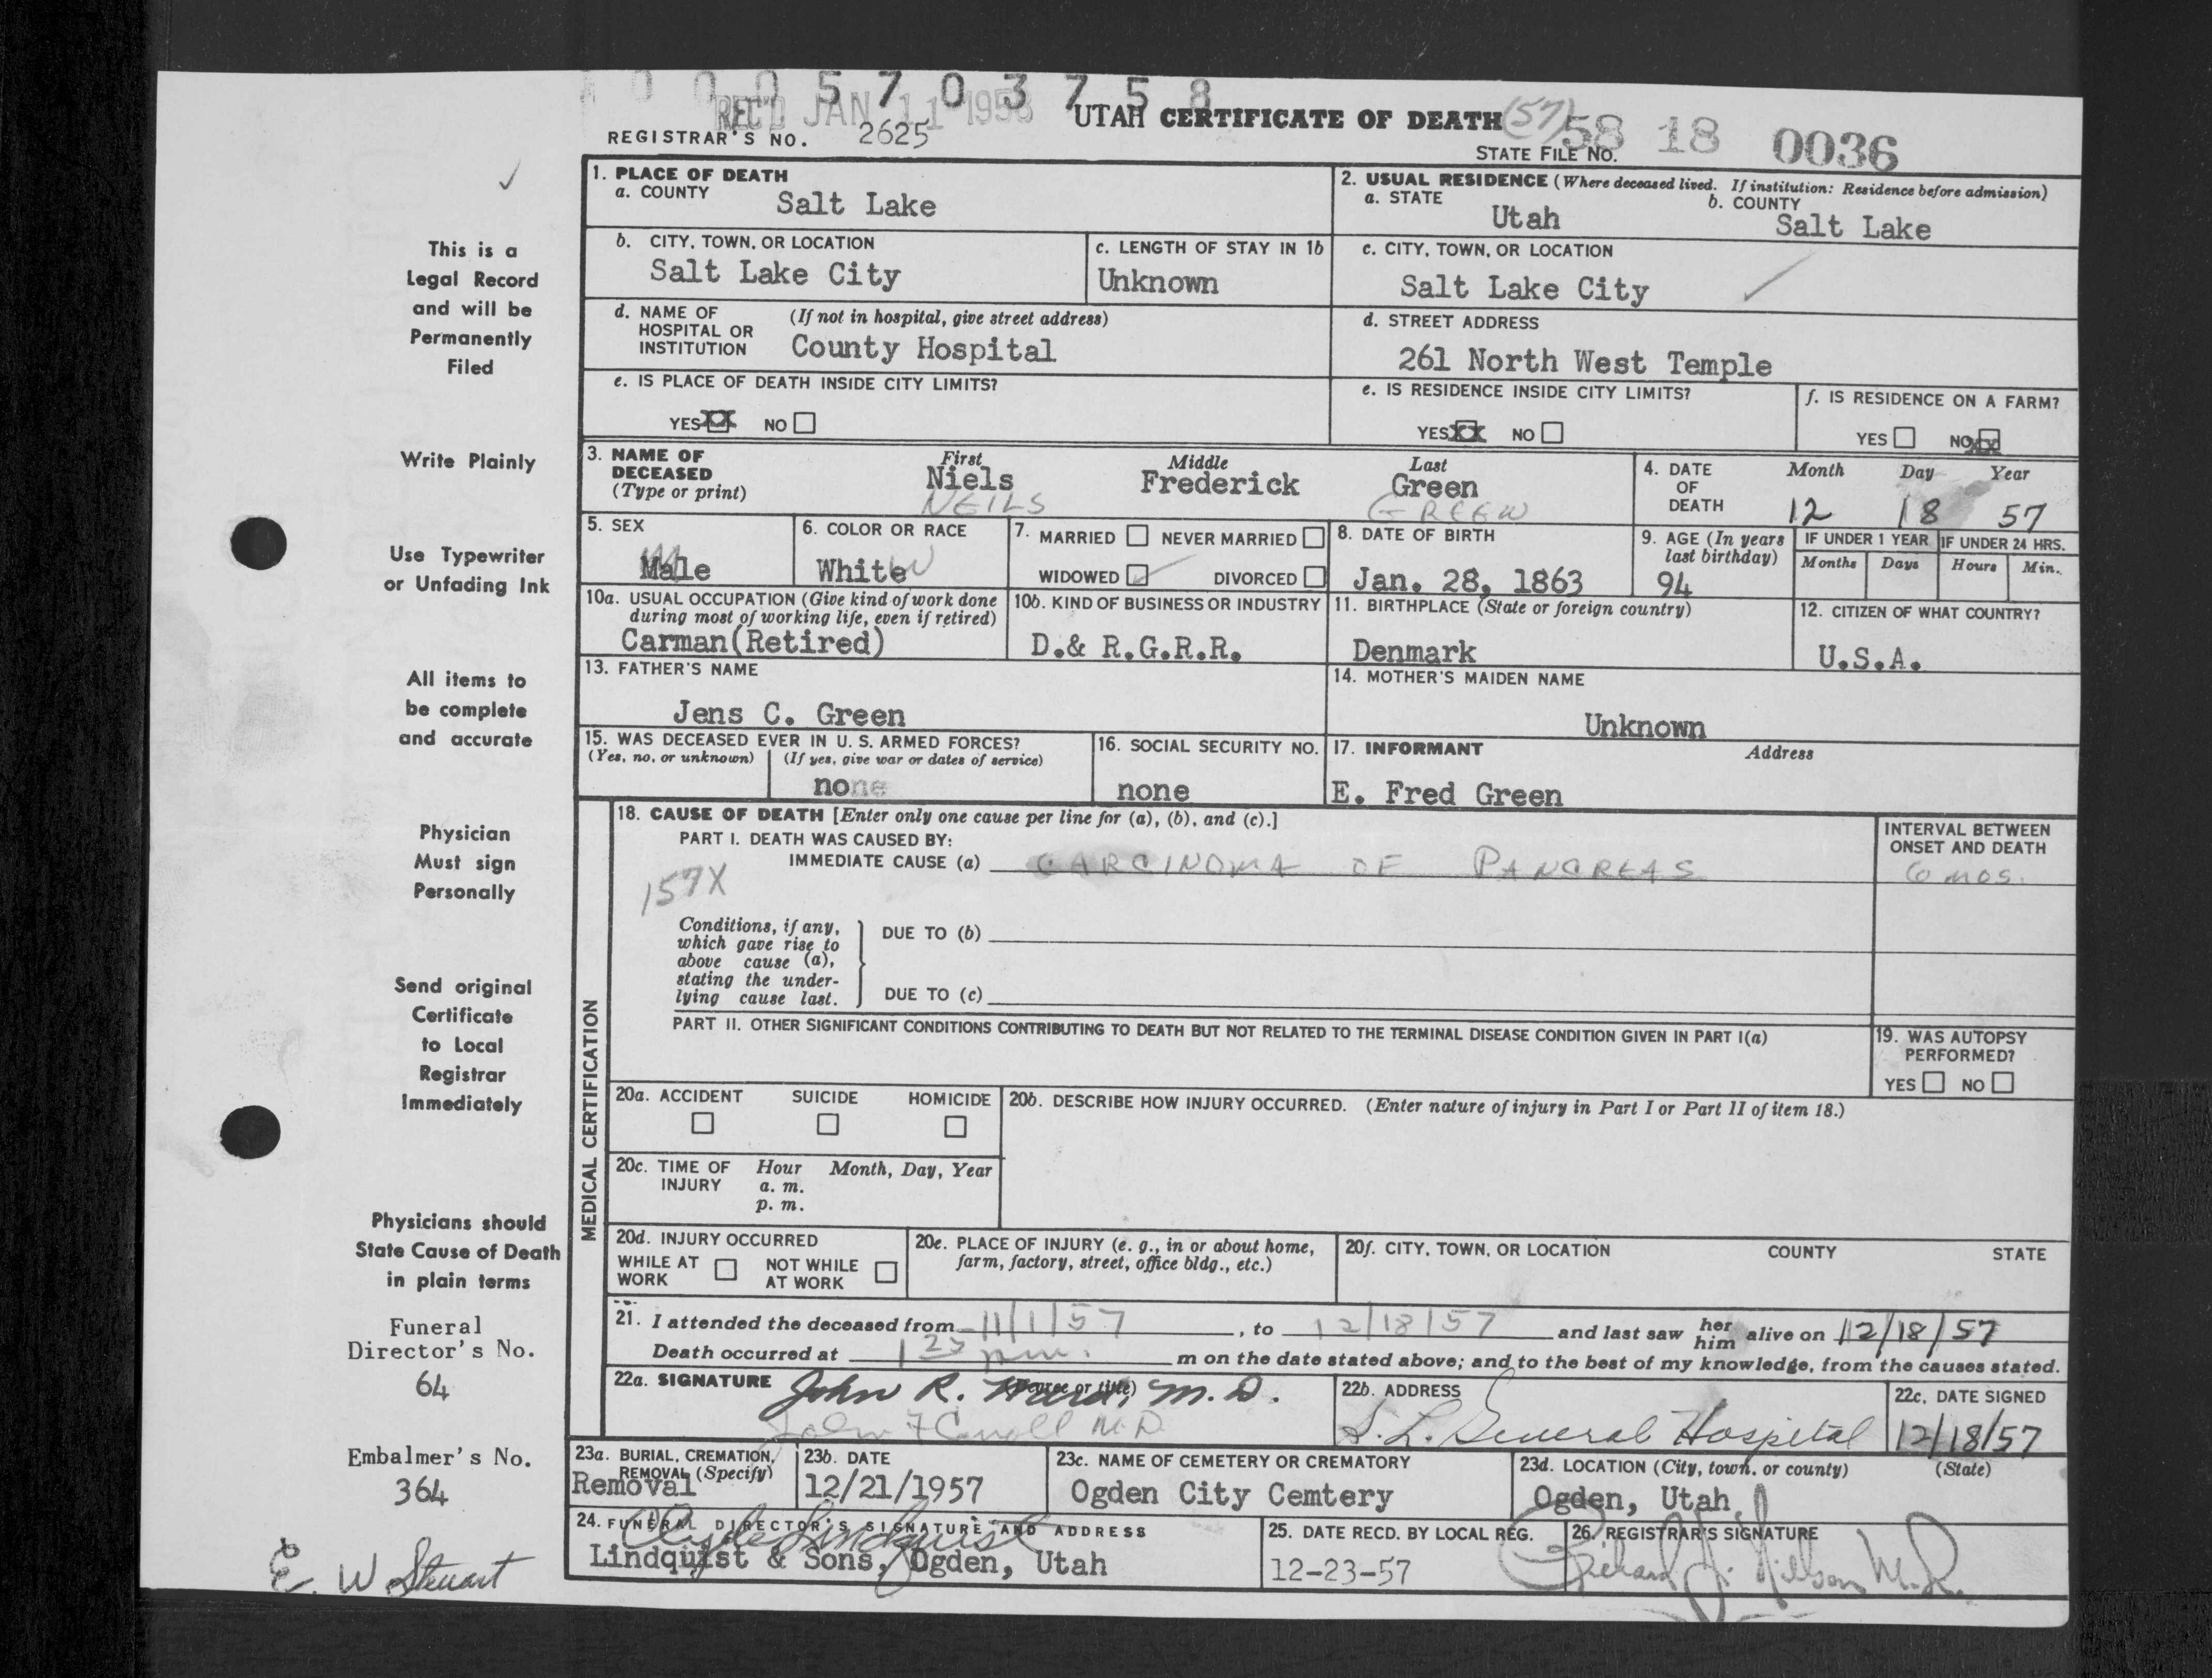 0 0 0 5 7 0 3 7 5 8
REC'D JAN 11 1958
UTAH CERTIFICATE OF DEATH (57) 58 18 0036
REGISTRAR'S NO. 2625
STATE FILE NO.
1. PLACE OF DEATH
a. COUNTY
Salt Lake
2. USUAL RESIDENCE (Where deceased lived. If institution: Residence before admission)
a. STATE
Utah
b. COUNTY
Salt Lake
b. CITY, TOWN, OR LOCATION
Salt Lake City
c. LENGTH OF STAY IN 1b
Unknown
c. CITY, TOWN, OR LOCATION
Salt Lake City
d. NAME OF HOSPITAL OR INSTITUTION
(If not in hospital, give street address)
County Hospital
d. STREET ADDRESS
261 North West Temple
e. IS PLACE OF DEATH INSIDE CITY LIMITS?
YES XX NO
e. IS RESIDENCE INSIDE CITY LIMITS?
YES XX NO
f. IS RESIDENCE ON A FARM?
YES NO XX
3. NAME OF DECEASED (Type or print)
First Middle Last
Niels Frederick Green
NEILS GREEN
4. DATE OF DEATH
Month Day Year
12 18 57
5. SEX
Male
M
6. COLOR OR RACE
White W
7. MARRIED NEVER MARRIED
WIDOWED ✓ DIVORCED
8. DATE OF BIRTH
Jan. 28, 1863
9. AGE (In years last birthday)
94
IF UNDER 1 YEAR
Months Days
IF UNDER 24 HRS.
Hours Min.
10a. USUAL OCCUPATION (Give kind of work done during most of working life, even if retired)
Carman(Retired)
10b. KIND OF BUSINESS OR INDUSTRY
D.& R.G.R.R.
11. BIRTHPLACE (State or foreign country)
Denmark
12. CITIZEN OF WHAT COUNTRY?
U.S.A.
13. FATHER'S NAME
Jens C. Green
14. MOTHER'S MAIDEN NAME
Unknown
15. WAS DECEASED EVER IN U. S. ARMED FORCES?
(Yes, no, or unknown) (If yes, give war or dates of service)
none
16. SOCIAL SECURITY NO.
none
17. INFORMANT Address
E. Fred Green
MEDICAL CERTIFICATION
18. CAUSE OF DEATH [Enter only one cause per line for (a), (b), and (c).]
PART I. DEATH WAS CAUSED BY:
IMMEDIATE CAUSE (a) CARCINOMA OF PANCREAS
INTERVAL BETWEEN ONSET AND DEATH
6 mos.
157X
Conditions, if any, which gave rise to above cause (a), stating the underlying cause last.
DUE TO (b)
DUE TO (c)
PART II. OTHER SIGNIFICANT CONDITIONS CONTRIBUTING TO DEATH BUT NOT RELATED TO THE TERMINAL DISEASE CONDITION GIVEN IN PART I(a)
19. WAS AUTOPSY PERFORMED?
YES NO
20a. ACCIDENT SUICIDE HOMICIDE
20b. DESCRIBE HOW INJURY OCCURRED. (Enter nature of injury in Part I or Part II of item 18.)
20c. TIME OF INJURY
Hour Month, Day, Year
a. m.
p. m.
20d. INJURY OCCURRED
WHILE AT WORK NOT WHILE AT WORK
20e. PLACE OF INJURY (e. g., in or about home, farm, factory, street, office bldg., etc.)
20f. CITY, TOWN, OR LOCATION COUNTY STATE
21. I attended the deceased from 11/1/57, to 12/18/57 and last saw her him alive on 12/18/57
Death occurred at 1 25 pm. m on the date stated above; and to the best of my knowledge, from the causes stated.
22a. SIGNATURE (Degree or title)
John R. Ward, M.D.
22b. ADDRESS
S.L. General Hospital
22c. DATE SIGNED
12/18/57
23a. BURIAL, CREMATION, REMOVAL (Specify)
Removal
23b. DATE
12/21/1957
23c. NAME OF CEMETERY OR CREMATORY
Ogden City Cemtery
23d. LOCATION (City, town, or county) (State)
Ogden, Utah
24. FUNERAL DIRECTOR'S SIGNATURE AND ADDRESS
Clyde Lindquist
Lindquist & Sons, Ogden, Utah
25. DATE RECD. BY LOCAL REG.
12-23-57
26. REGISTRAR'S SIGNATURE
This is a
Legal Record
and will be
Permanently
Filed
Write Plainly
Use Typewriter
or Unfading Ink
All items to
be complete
and accurate
Physician
Must sign
Personally
Send original
Certificate
to Local
Registrar
Immediately
Physicians should
State Cause of Death
in plain terms
Funeral
Director's No.
64
Embalmer's No.
364
E. W Steuart